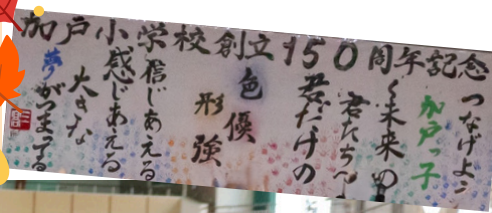 加戸小学校創立150周年記念
つなげよう
加戸っ子
く未来の
君たちへ
君だけの
色
優
形
強
信じあえる
感じあえる
大きな
夢がつまってる